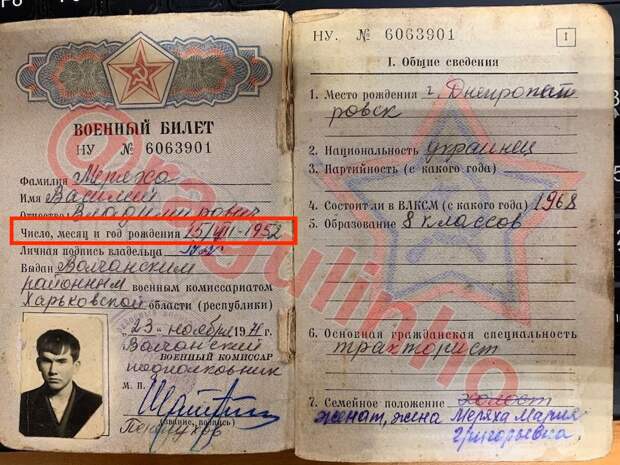 ВОЕННЫЙ БИЛЕТ
НУ № 6063901
Фамилия Меряха
Имя Василий
Отчество Владимирович
Число, месяц и год рождения 15/VIII-1952
Личная подпись владельца
Выдан Волчанским
районным военным комиссариатом
Харьковской области (республики)
"23" ноября 1971 г.
Волчанский
ВОЕННЫЙ КОМИССАР
подполковник
М. П.
(звание, подпись)
НУ. № 6063901
1
I. Общие сведения
1. Место рождения г. Днепропет
ровск
2. Национальность украинец
3. Партийность (с какого года)
4. Состоит ли в ВЛКСМ (с какого года) 1968
5. Образование 8 классов
6. Основная гражданская специальность
тракторист
7. Семейное положение холост
женат, жена Меряха Мария
Григорьевна.
@ragulinho